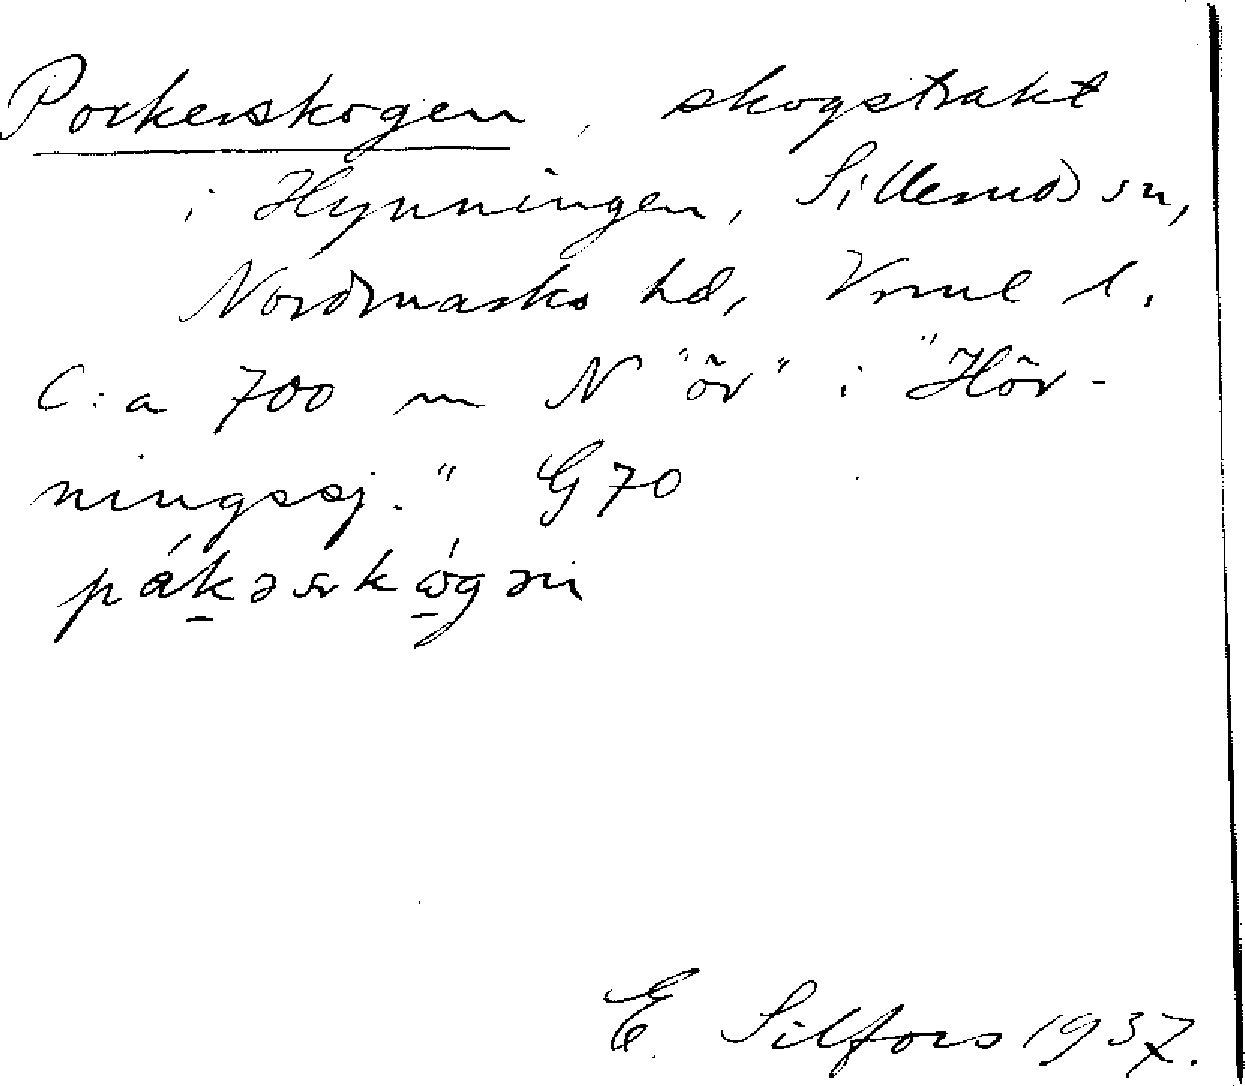 Porkerskogen, skogstrakt
i Hynningen, Silleruds sn,
Nordmarks hd, Vrml l.
C:a 700 m N "ör" i "Hör-
ningssj." G70
E. Silfors 1937.